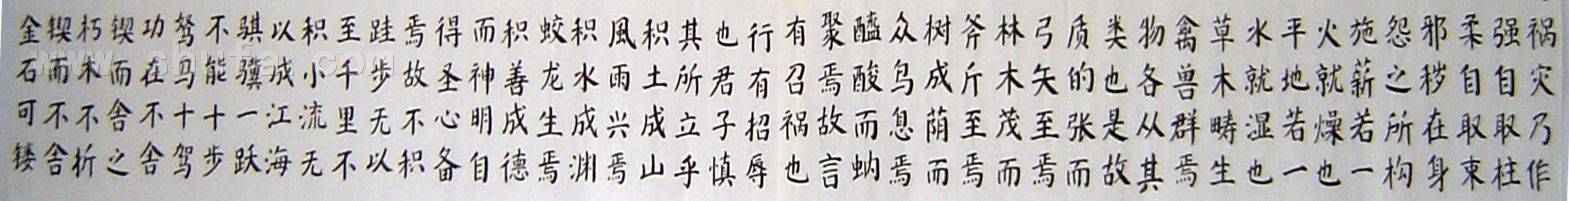 祸灾乃作
强自取柱
柔自取束
邪秽在身
怨之所构
施薪若一
火就燥也
平地若一
水就湿也
草木畴生
禽兽群焉
物各从其
类也是故
质的张而
弓矢至焉
林木茂而
斧斤至焉
树成荫而
众鸟息焉
醯酸而蚋
聚焉故言
有召祸也
行有招辱
也君子慎
其所立乎
积土成山
風雨兴焉
积水成渊
蛟龙生焉
积善成德
而神明自
得圣心备
焉故不积
跬步无以
至千里不
积小流无
以成江海
骐骥一跃
不能十步
驽马十驾
功在不舍
锲而舍之
朽木不析
锲而不舍
金石可镂